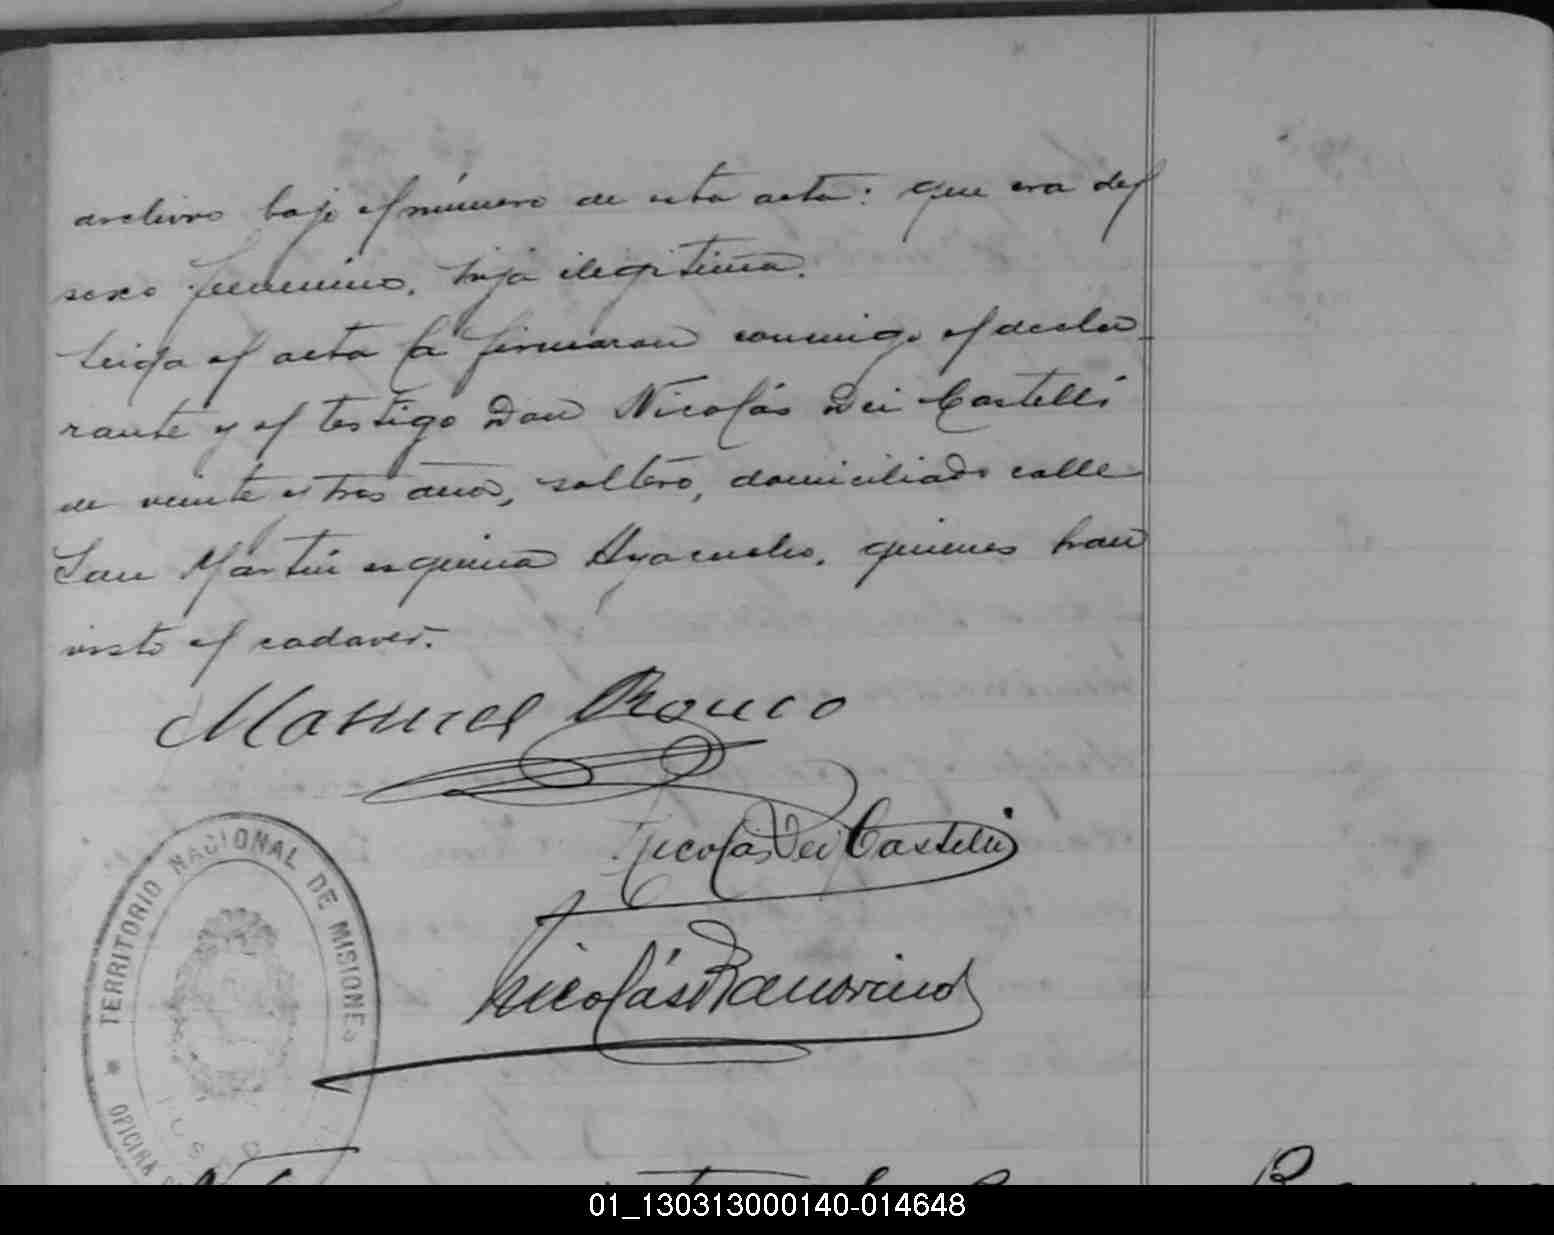 archivo bajo el número de esta acta: que era del
sexo femenino, hija ilegitima.
Leida el acta la firmaron conmigo el decla-
rante y el testigo Don Nicolás Dei Castelli
de veinte y tres años, soltero, domiciliado calle
San Martin esquina Ayacucho, quienes han
visto el cadaver.
Manuel Ronco
Nicolás Dei Castelli
Nicolás
TERRITORIO NACIONAL DE MISIONES
OFICINA
01_130313000140-014648